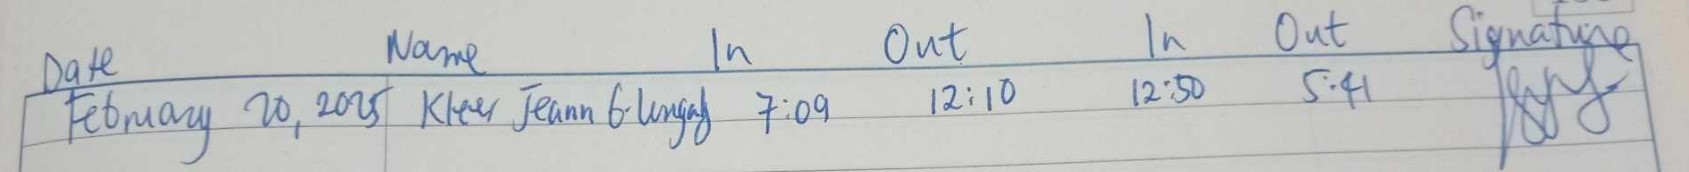 Date Name In Out In Out Signature
February 20, 2025 Jeann G. 7:09 12:10 12:50 5:41